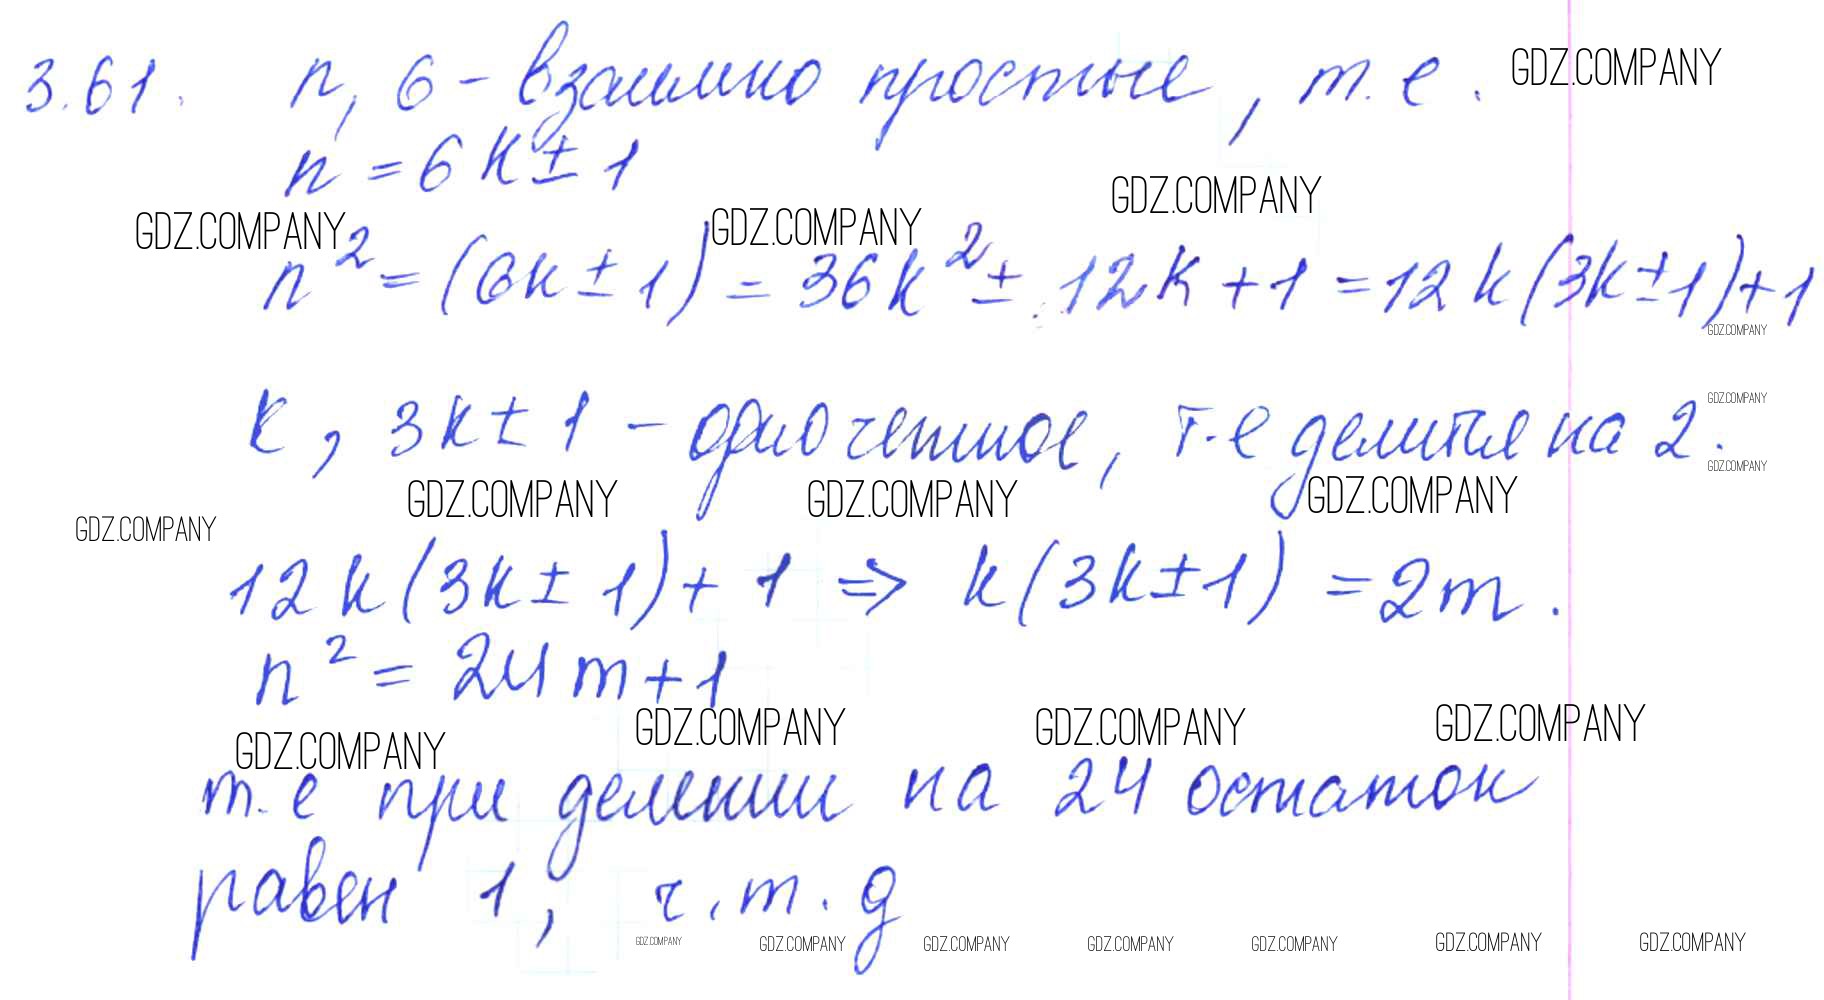 3.61. n, 6 - взаимно простые, т.е. GDZ.COMPANY
n = 6k ± 1
GDZ.COMPANY GDZ.COMPANY GDZ.COMPANY
n² = (6k ± 1) = 36k² ± 12k + 1 = 12k(3k ± 1) + 1
GDZ.COMPANY
GDZ.COMPANY
k, 3k ± 1 - одно четное, т.е делится на 2.
GDZ.COMPANY
GDZ.COMPANY GDZ.COMPANY GDZ.COMPANY GDZ.COMPANY
12k(3k ± 1) + 1 ⇒ k(3k ± 1) = 2m.
n² = 24m + 1
GDZ.COMPANY GDZ.COMPANY GDZ.COMPANY GDZ.COMPANY
т.е при делении на 24 остаток
равен 1, ч.т.д
GDZ.COMPANY GDZ.COMPANY GDZ.COMPANY GDZ.COMPANY GDZ.COMPANY GDZ.COMPANY GDZ.COMPANY